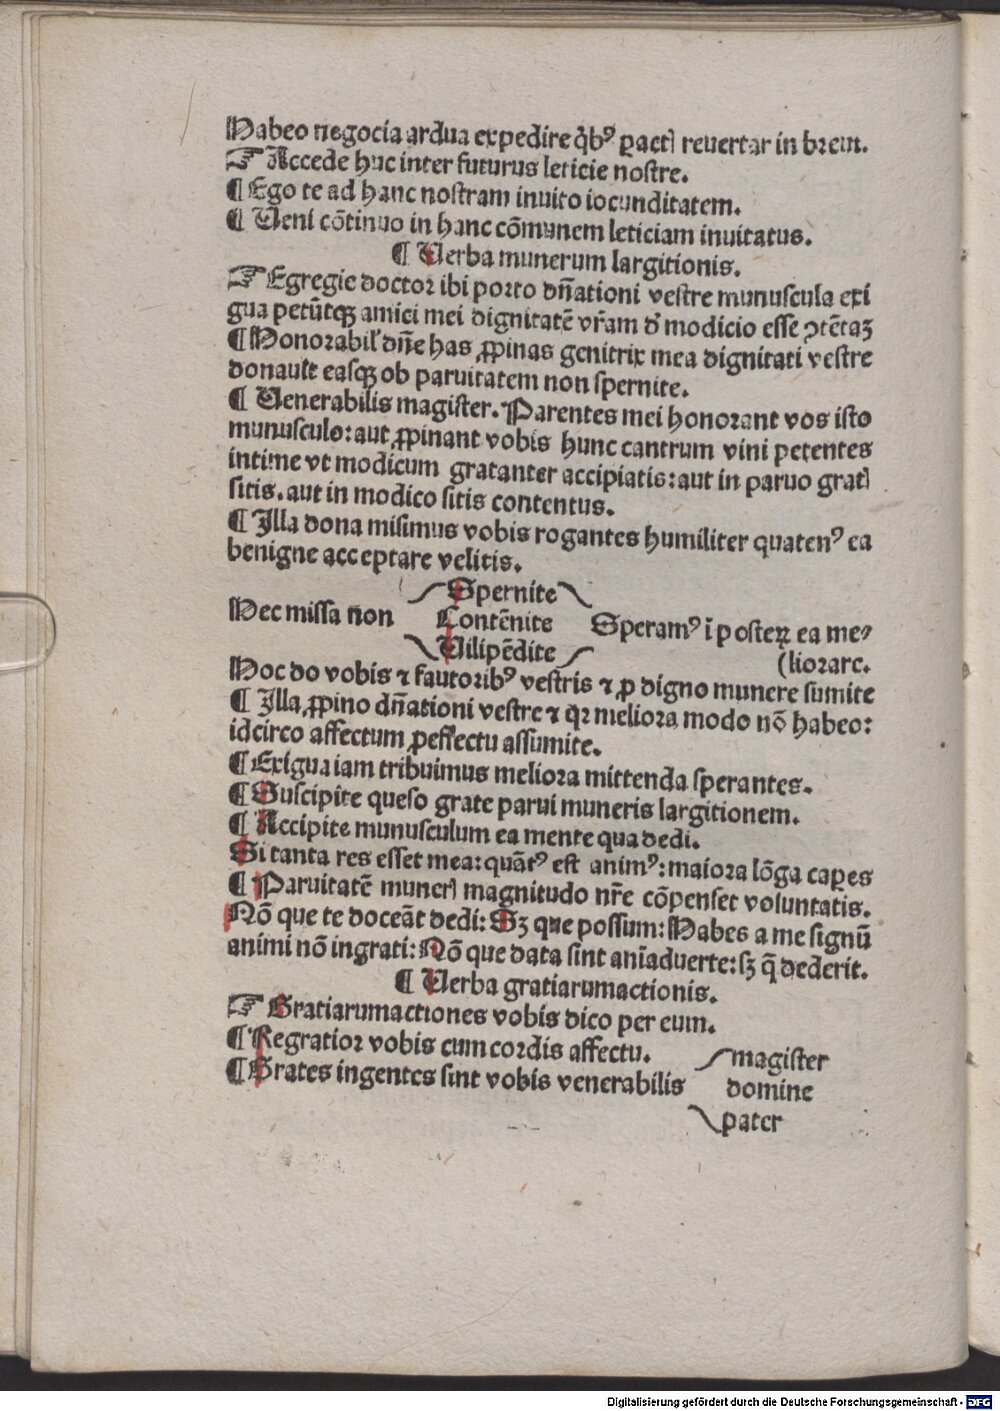 Habeo negocia ardua expedire q̃bꝰ ꝑactꝭ reuertar in breui.
☞ Accede huc inter futurus leticie nostre.
¶ Ego te ad hanc nostram inuito iocunditatem.
¶ Ueni cõtinuo in hanc cõmunem leticiam inuitatus.
¶ Uerba munerum largitionis.
☞ Egregie doctor ibi porto dñationi vestre munuscula exi
gua petũtqꝫ amici mei dignitatẽ vr̃am d' modicio esse ꝯtẽtaꝫ
¶ Honorabil' dñe has ꝓpinas genitrix mea dignitati vestre
donauit easqꝫ ob paruitatem non spernite.
¶ Uenerabilis magister. Parentes mei honorant vos isto
munusculo: aut ꝓpinant vobis hunc cantrum vini petentes
intime vt modicum gratanter accipiatis: aut in paruo gratꝭ
sitis. aut in modico sitis contentus.
¶ Illa dona misimus vobis rogantes humiliter quatenꝰ ea
benigne acceptare velitis.
Spernite
Hec missa ñon Contẽnite Speramꝰ ĩ posteꝝ ea me⸗
Uilipẽdite (liorare.
Hoc do vobis ⁊ fautoribꝰ vestris ⁊ ꝓ digno munere sumite
¶ Illa ꝓpino dñationi vestre ⁊ qꝛ meliora modo nõ habeo:
idcirco affectum ꝓ effectu assumite.
¶ Exigua iam tribuimus meliora mittenda sperantes.
¶ Suscipite queso grate parui muneris largitionem.
¶ Accipite munusculum ea mente qua dedi.
Si tanta res esset mea: quãtꝰ est animꝰ: maiora lõga capes
¶ Paruitatẽ munerꝭ magnitudo nr̃e cõpenset voluntatis.
Nõ que te doceãt dedi: Sꝫ que possum: Habes a me signũ
animi nõ ingrati: Nõ que data sint aniãduerte: sꝫ q̃ dederit.
¶ Uerba gratiarumactionis.
☞ Gratiarumactiones vobis dico per eum.
¶ Regratior vobis cum cordis affectu.
magister
¶ Grates ingentes sint vobis venerabilis domine
pater
Digitalisierung gefördert durch die Deutsche Forschungsgemeinschaft - DFG